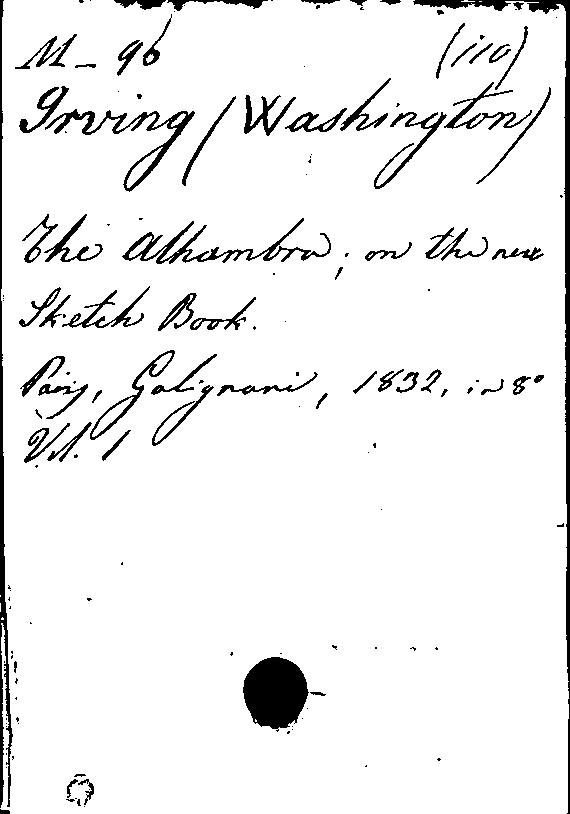 M - 96 (110)
Irving (Washington)
The Alhambra; on the new
Sketch Book.
Paris, Galignani, 1832, in 8°
Vol. 1